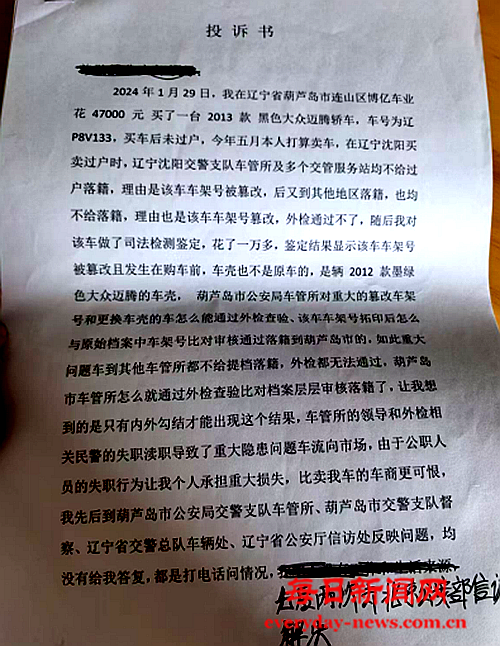 投诉书
2024 年 1 月 29 日，我在辽宁省葫芦岛市连山区博亿车业
花 47000 元 买了一台 2013 款 黑色大众迈腾轿车，车号为辽
P8V133，买车后未过户，今年五月本人打算卖车，在辽宁沈阳买
卖过户时，辽宁沈阳交警支队车管所及多个交管服务站均不给过
户落籍，理由是该车车架号被篡改，后又到其他地区落籍，也均
不给落籍，理由也是该车车架号篡改，外检通过不了，随后我对
该车做了司法检测鉴定，花了一万多，鉴定结果显示该车车架号
被篡改且发生在购车前，车壳也不是原车的，是辆 2012 款墨绿
色大众迈腾的车壳， 葫芦岛市公安局车管所对重大的篡改车架
号和更换车壳的车怎么能通过外检查验、该车车架号拓印后怎么
与原始档案中车架号比对审核通过落籍到葫芦岛市的，如此重大
问题车到其他车管所都不给提档落籍，外检都无法通过，葫芦岛
市车管所怎么就通过外检查验比对档案层层审核落籍了，让我想
到的是只有内外勾结才能出现这个结果，车管所的领导和外检相
关民警的失职渎职导致了重大隐患问题车流向市场，由于公职人
员的失职行为让我个人承担重大损失，比卖我车的车商更可恨，
我先后到葫芦岛市公安局交警支队车管所、葫芦岛市交警支队督
察、辽宁省交警总队车辆处、辽宁省公安厅信访处反映问题，均
没有给我答复，都是打电话问情况，
部信访
解决
每日新闻网
everyday-news.com